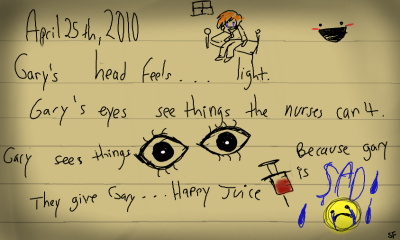 April 25th, 2010
Gary's head feels... light.
Gary's eyes see things the nurses can't.
Gary sees things
Because gary
is
SAD
They give Gary... Happy Juice
SF